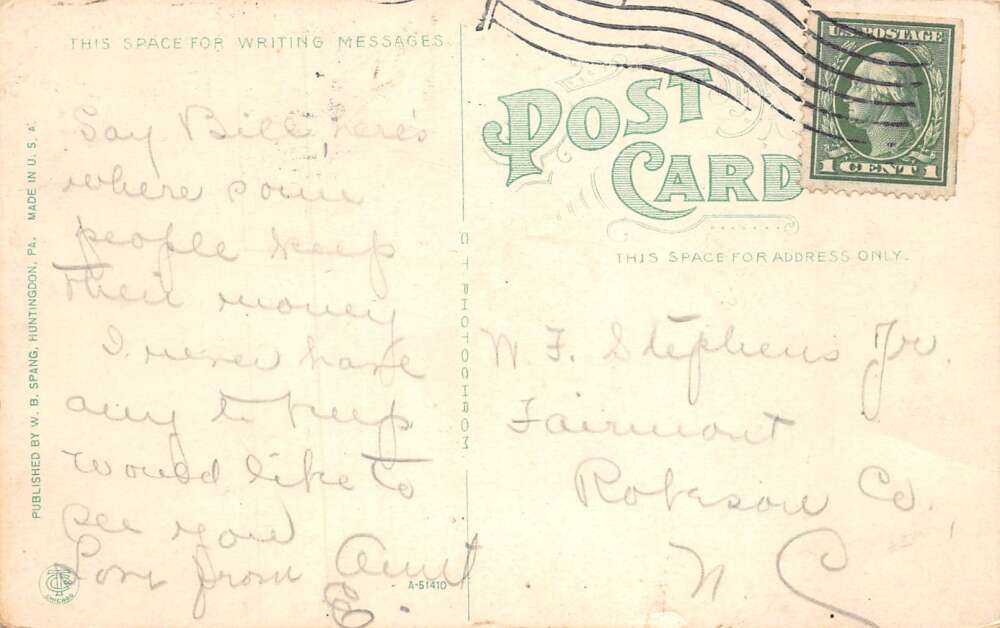 THIS SPACE FOR WRITING MESSAGES.
Say Bill, here's
where some
people keep
their money
I never have
any to keep
would like to
see you
Love from Aunt
E.
PUBLISHED BY W. B. SPANG, HUNTINGDON, PA. MADE IN U. S. A.
CHICAGO
A-51410
C T PHOTOCHROM
POST
CARD
U.S. POSTAGE
1 CENT 1
THIS SPACE FOR ADDRESS ONLY.
W. F. Stephens Jr.
Fairmont
Robeson Co.
N. C